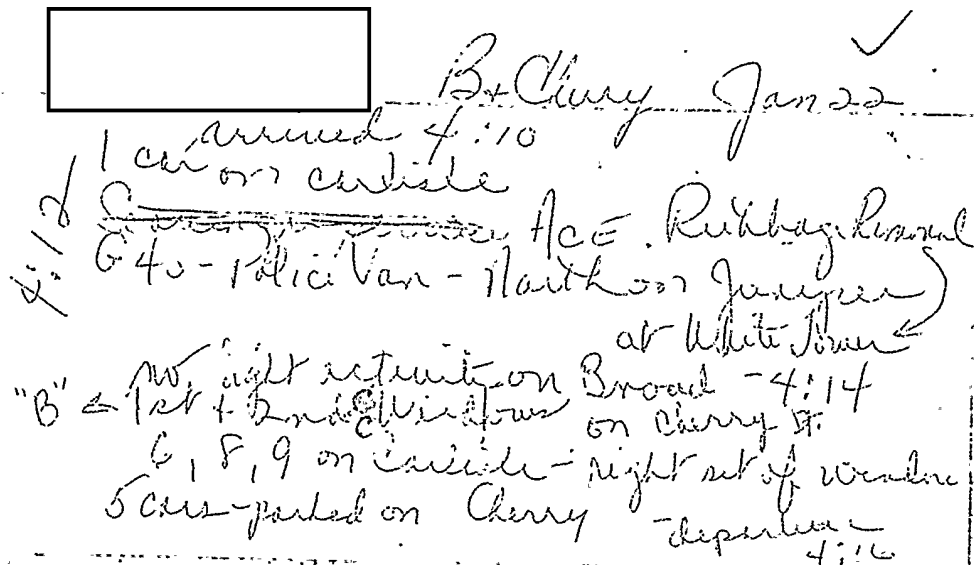 B + Cherry Jan 22
arrived 4:10
1 car on carlisle
4:12 ACE. Rubbage Removal
640 - Police Van - North on Juniper
at White Tower
no light activity on Broad - 4:14
"B" 1st + 2nd Windows on Cherry St.
6, 8, 9 on Carlisle - right set of window
5 cars - parked on Cherry - departure
4:16